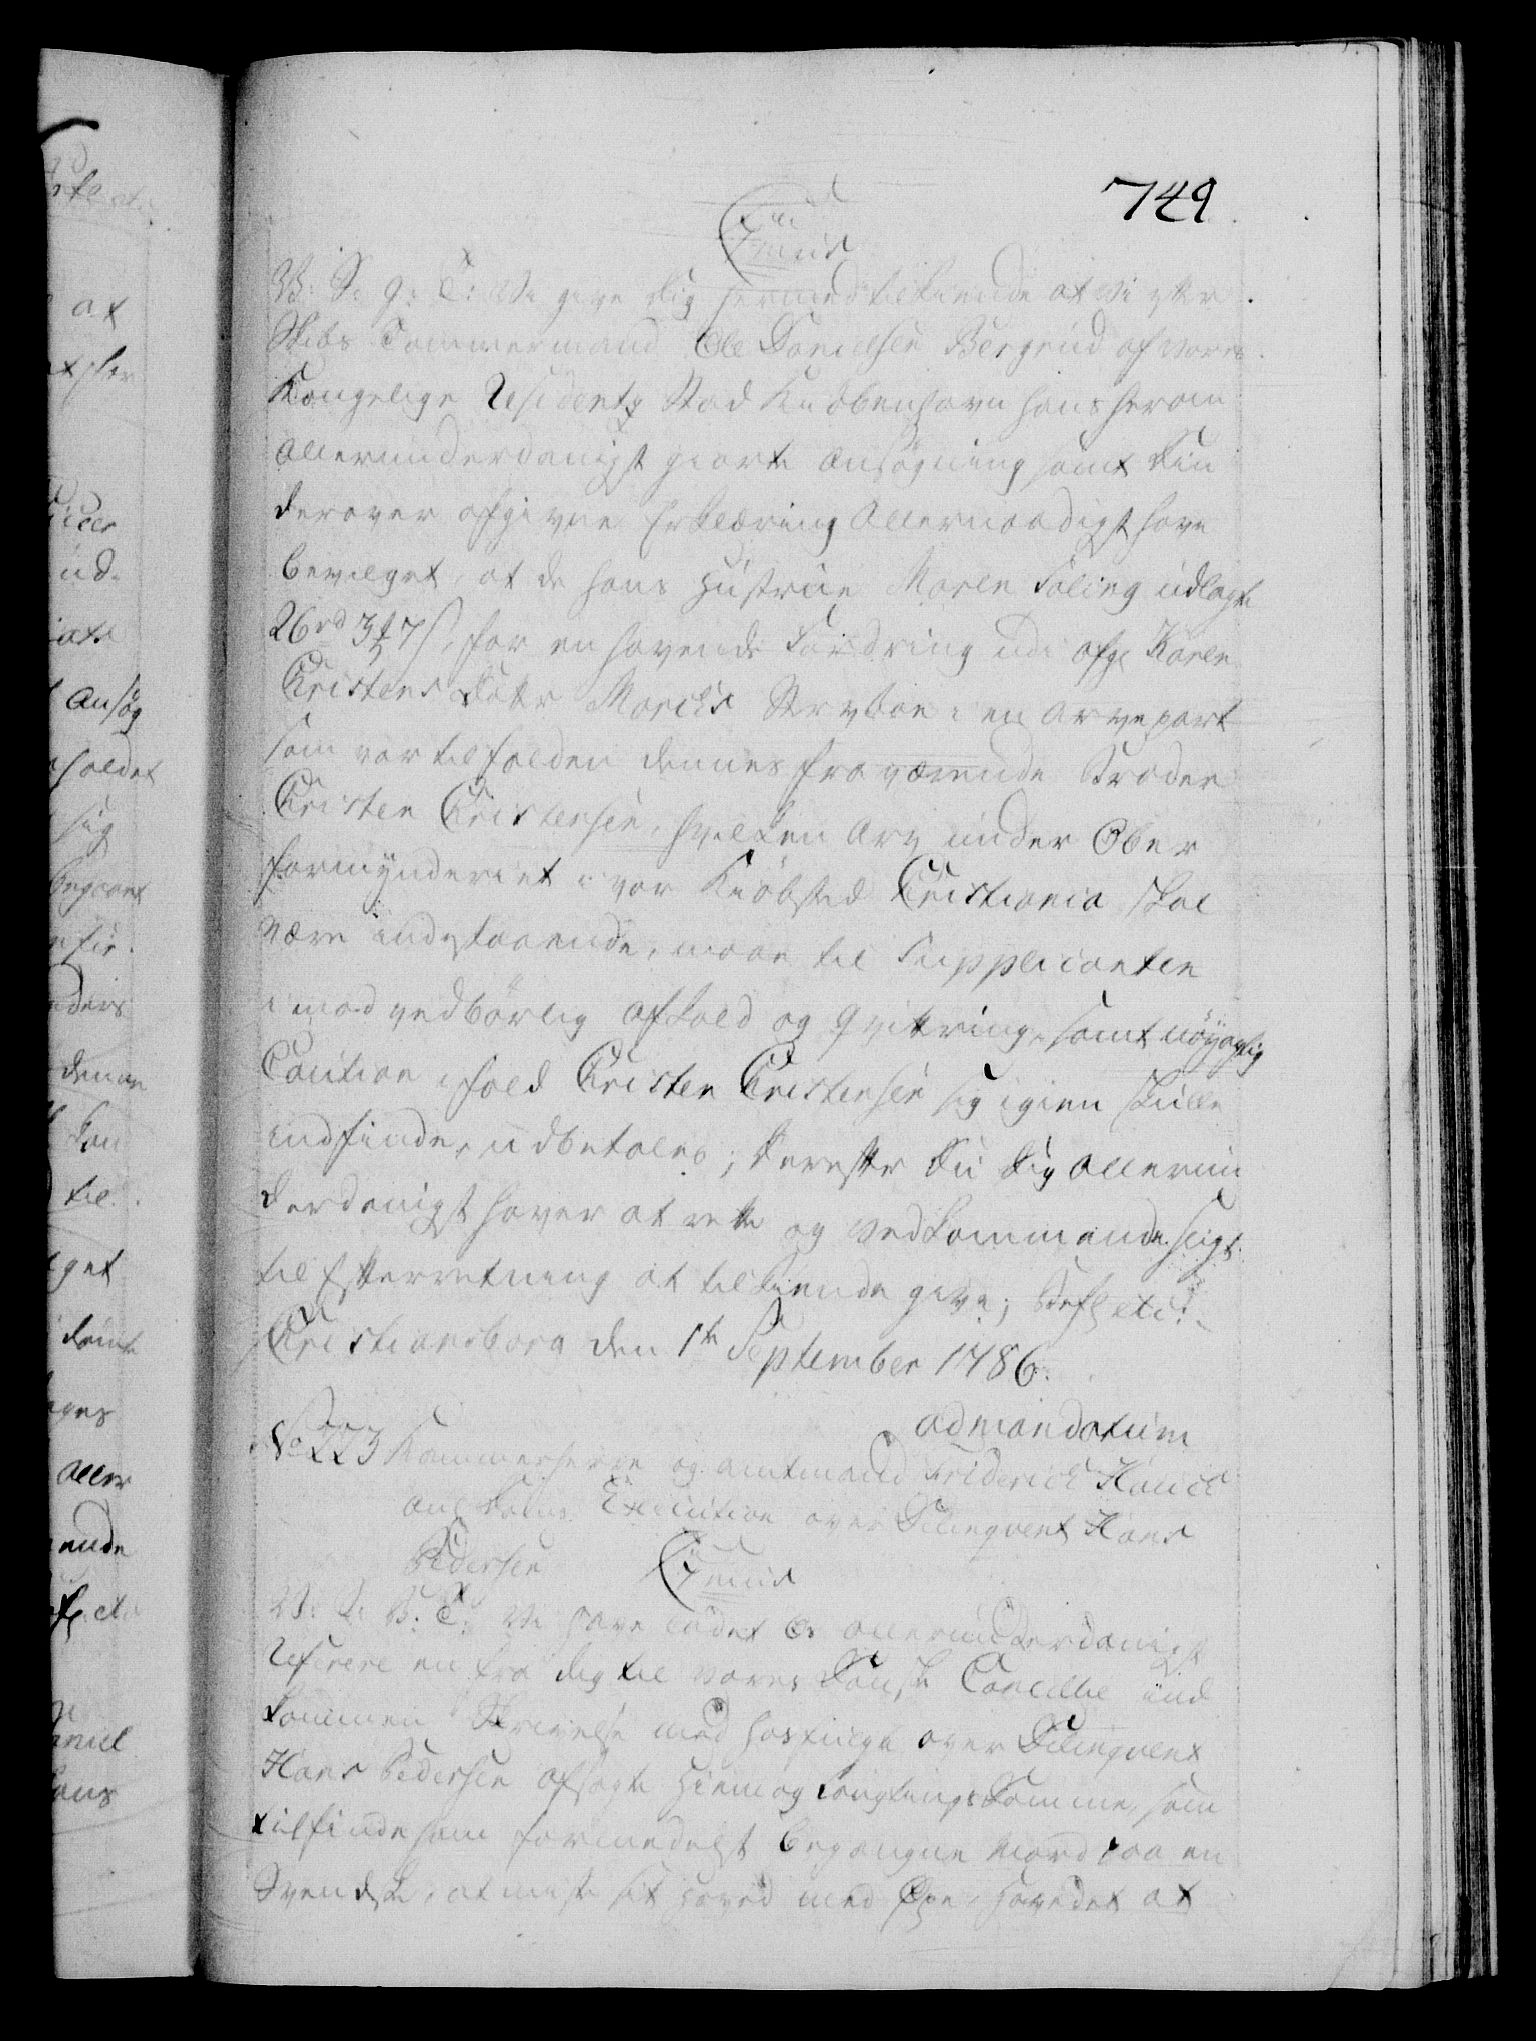 749
C 7 mus
V: S: G: T: Vi give dig hermed tilkiende at Vi efter
Skibs Tømmermand Ole Danielsen Bergrud af vores
Kongelige Residentz Stad Kiøbenhavn hans herom
allerunderdanigst giorte Ansøgning samt din
derover afgivne Erklæring Allernaadigst have
bevilget, at de hans Hustrue Maren Foling udlagte
26 rd 3 ß 7 s, for en havende Fordring udi afg: Karen
Christens Datter Morchs Stervboe i en Arvepart
som var tilfalden dennes fraværende Broder
Christen Christensen, hvilken Arv under Ober
formynderiet i vor Kiøbsted Christiania skal
være indestaaende, maae til Supplicanten
imod vedbørlig Afkald og Qvittering, samt nøyagtig
Caution ifald Christen Christensen sig igien skulle
indfinde, udbetales; derefter du dig allerun
derdanigst haver at rette og vedkommende sligt
til Efterretning at tilkiende give; Befl: etc:
Christiansborg den 1te September 1786.
ad mandatum
No 223 Kammerherre og Amtmand Friderich Hauch
anl: Execution over Delinqvent Hans
Pedersen C 7 mus
V: S: G: T: Vi have ladet Os allerunderdanigst
referere en fra dig til vores Danske Cancellie ind
kommen Skrivelse med hosfulgte over Delinqvent
Hans Pedersen afsagte Hiem og Laugtings Domme, som
tilfinde ham formedelst begangne Mord paa en
Svendske, at miste sit Hoved med Øxe, Hovedet at